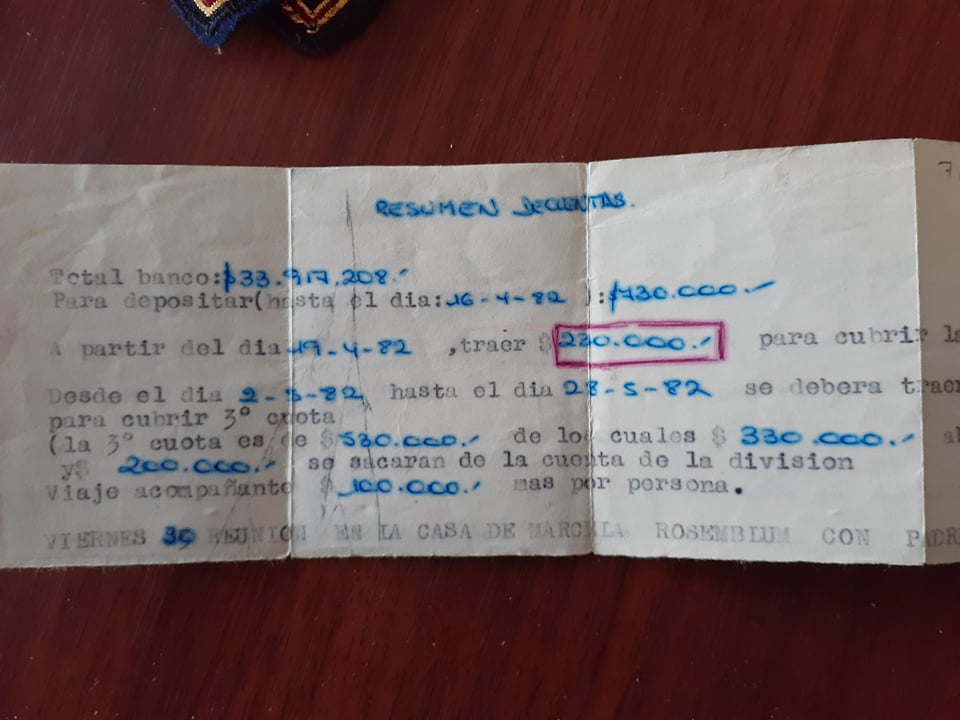 RESUMEN DE CUENTAS.
Total banco:$33.917,208.-
Para depositar(hasta el dia:16-4-82 ):$430.000.-
A partir del dia 19-4-82 ,traer $ 230.000.- para cubrir la
Desde el dia 2-5-82 hasta el dia 28-5-82 se debera traer
para cubrir 3° cuota
(la 3° cuota es de $530.000.- de los cuales $ 330.000.-
y$ 200.000.- se sacaran de la cuenta de la division
Viaje acompañante $100.000.- mas por persona.
VIERNES 30 REUNION EN LA CASA DE MARCELA ROSEMBLUM CON PADRE